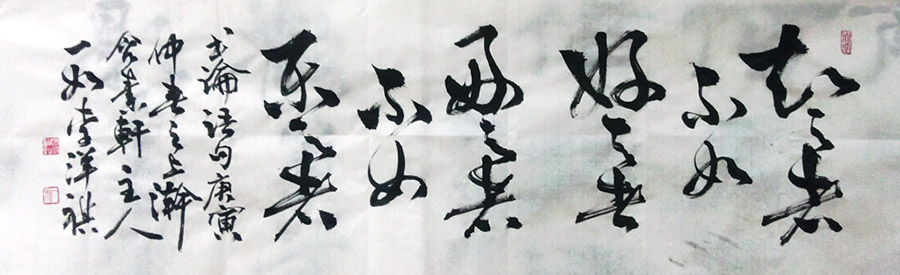 知之者
不如
好之者
好之者
不如
乐之者
书論語句庚寅
仲春之上澣
軒主人
一如李洋祺